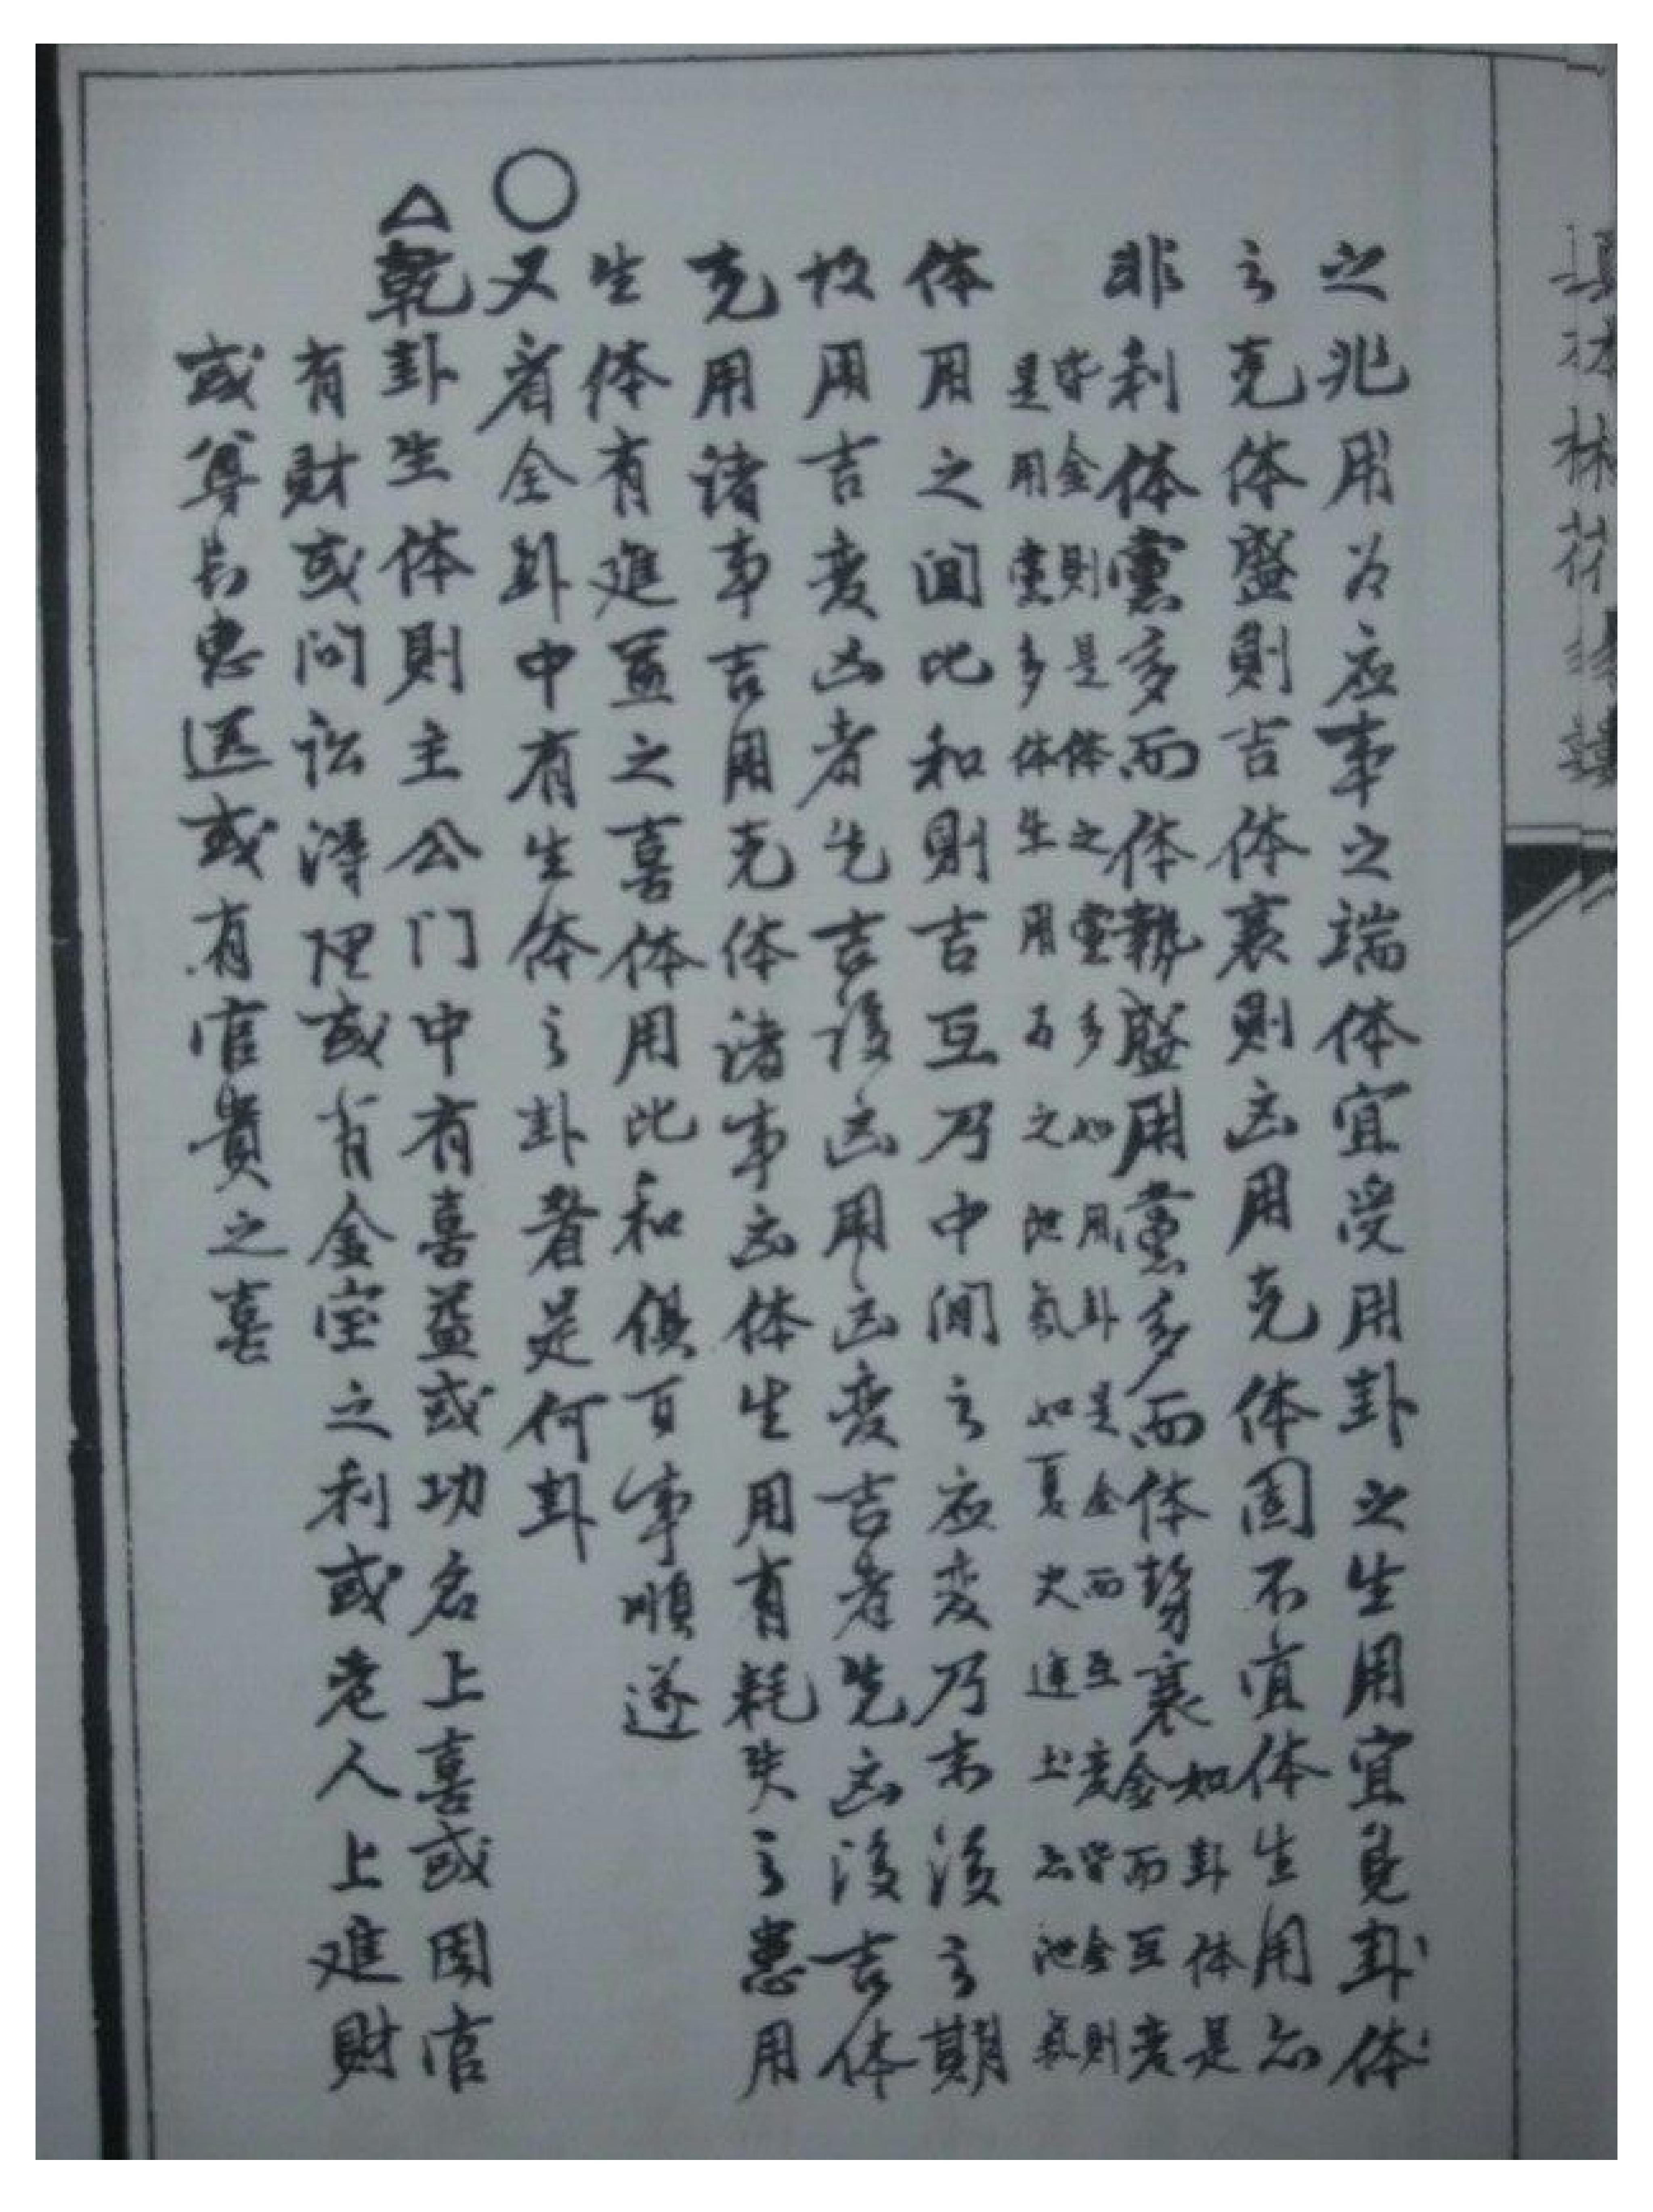 之兆用为应事之端体宜受用卦之生用宜見卦体
之克体盛則吉体衰則凶用克体固不宜体生用亦
非利体党多而体勢盛用党多而体勢衰如卦体是
金而互变
皆金則是体之党多如用卦是金而互变皆金則
是用党多体生用为之泄氣如夏火逢土亦泄氣
体用之间比和則吉互乃中间之应变乃末後之期
故用吉变凶者先吉後凶用凶变吉者先凶後吉体
克用诸事吉用克体诸事凶体生用有耗失之患用
生体有進益之喜体用比和俱百事順遂
○又看全卦中有生体之卦者是何卦
△乾卦生体則主公门中有喜益或功名上喜或因官
有財或问讼得理或有金宝之利或老人上進財
或尊长惠送或有官貴之喜